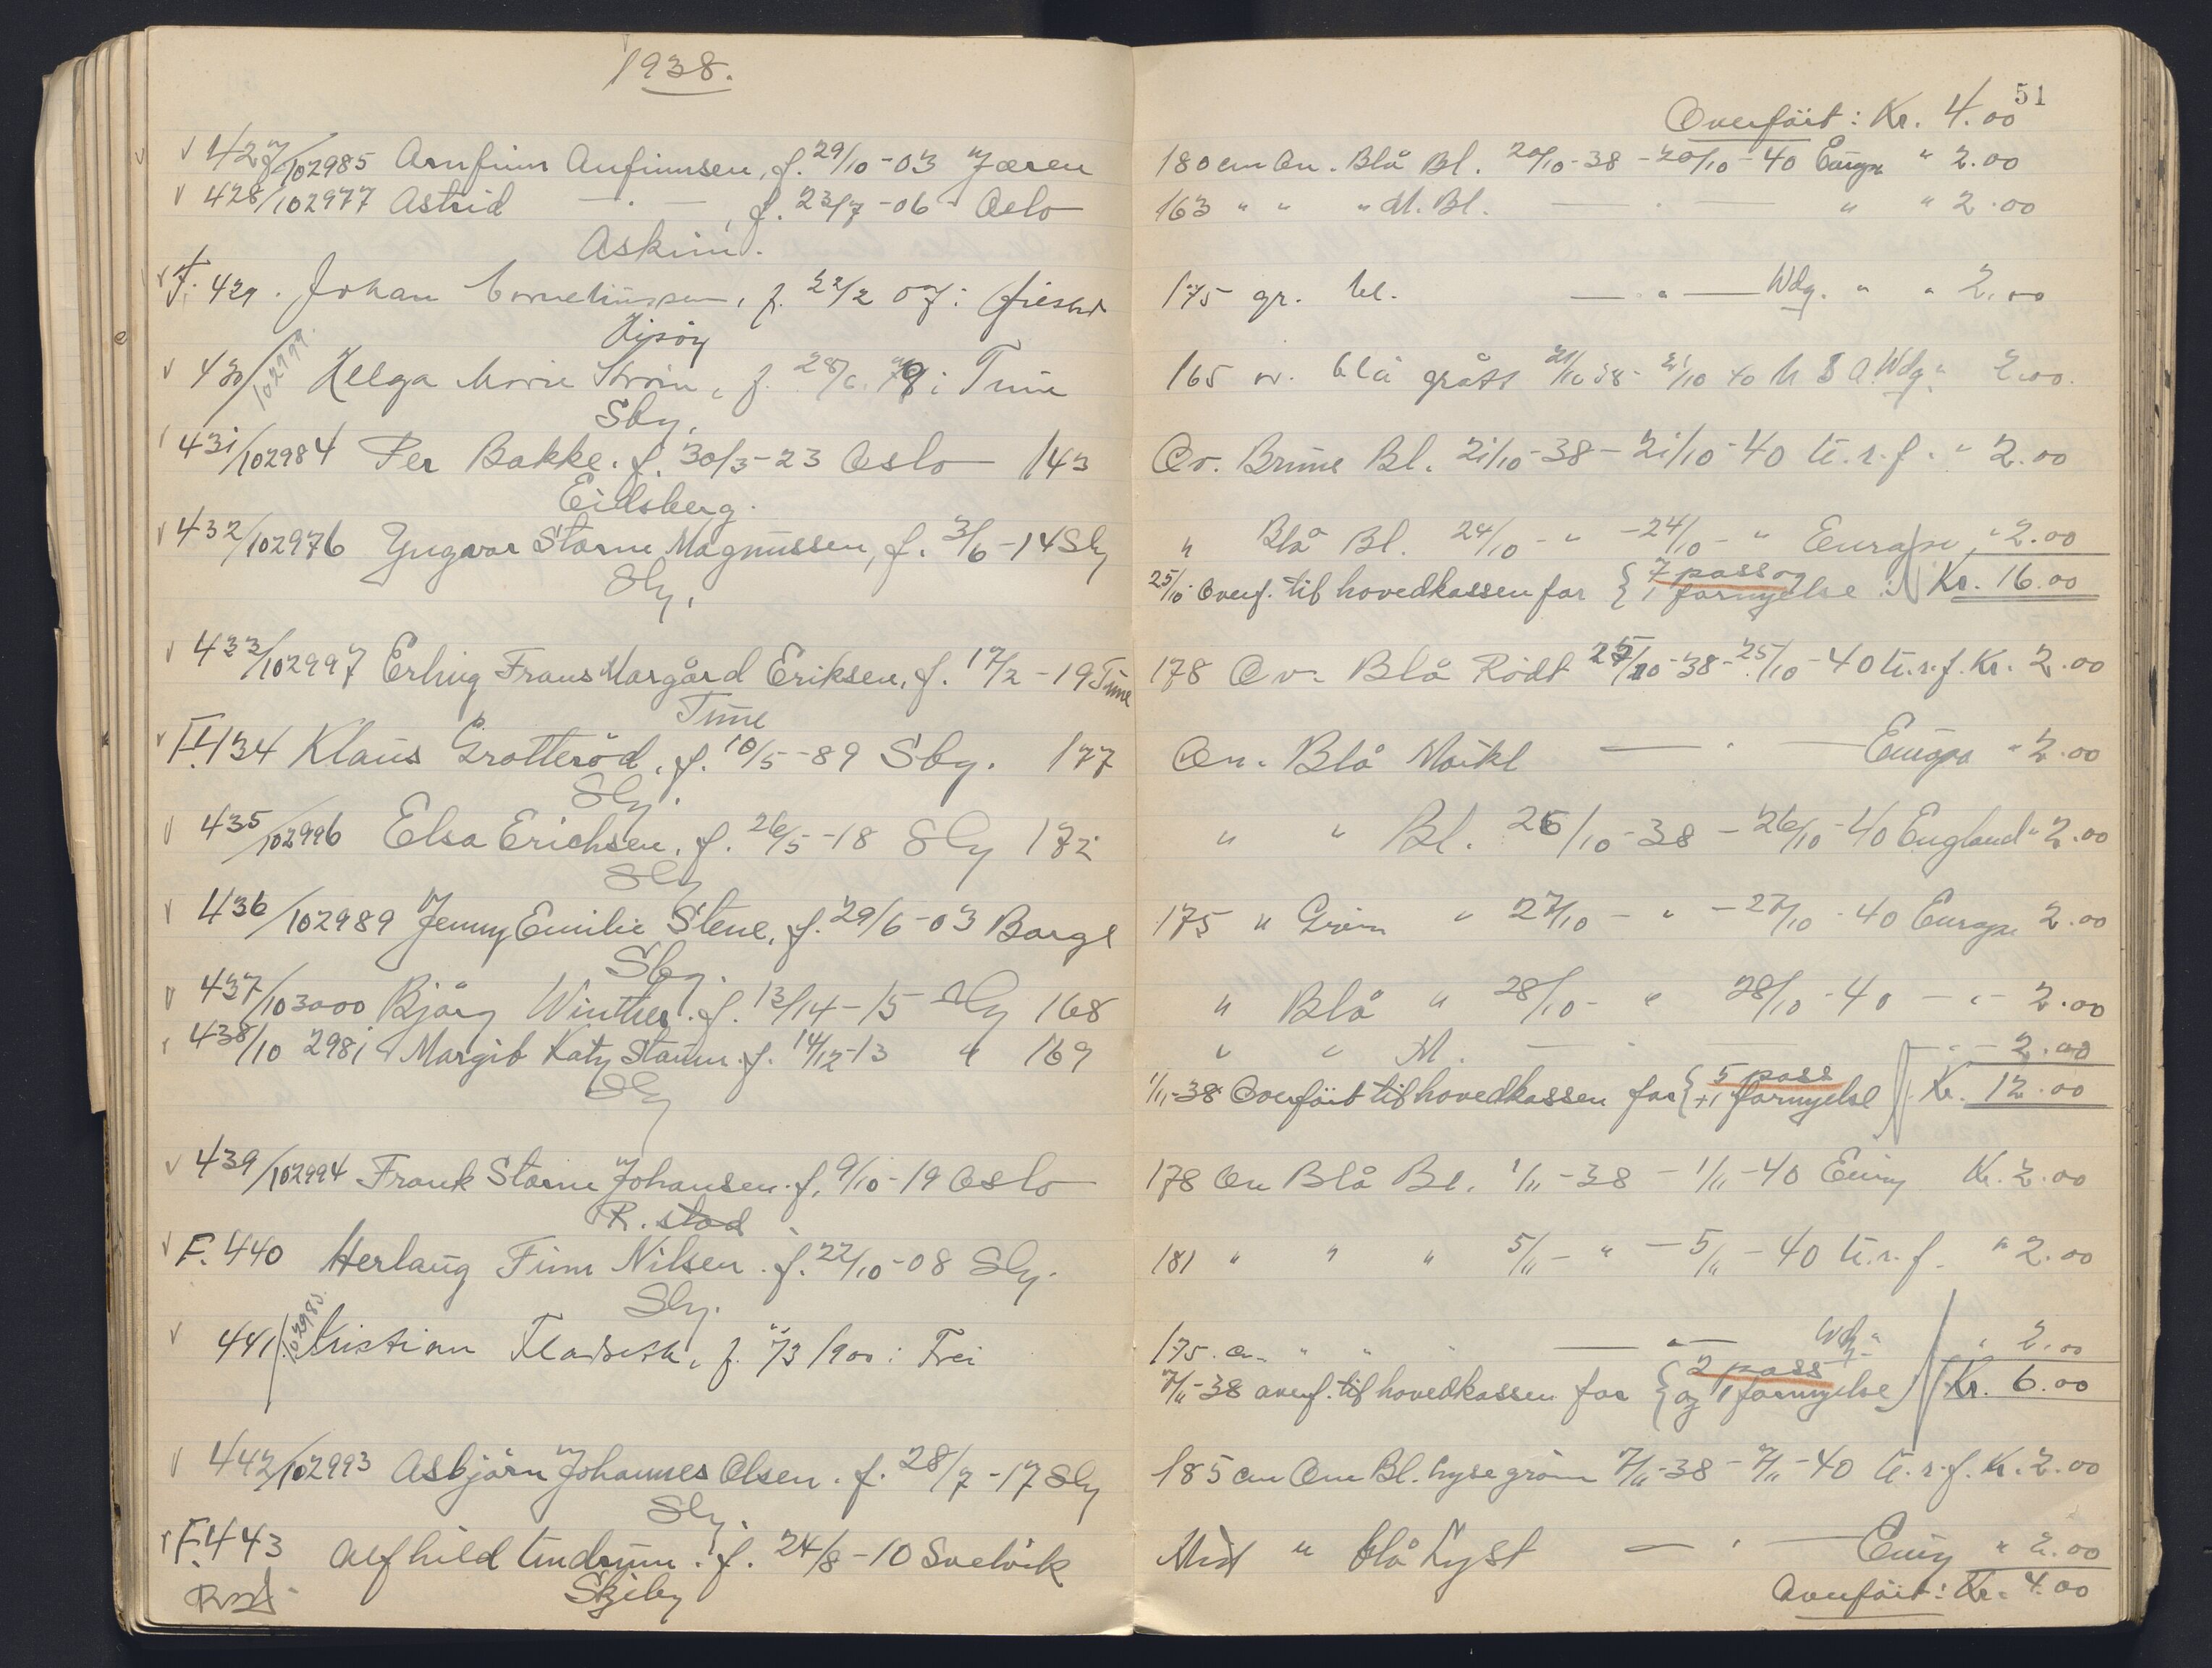 1938.
427/102985 Arnfinn Anfinnsen, f. 29/10-03 Jæren
428/102977 Astrid — · — , f. 23/7-06 - Oslo
Askim.
F. 429. Johan Corneliussen, f. 22/2 07 i
Hisöy
430/102999. Helga Marie Ström, f. 28/6. 78 i Tune
Sbg.
431/102984 Per Bakke. f. 30/3-23 Oslo 143
Eidsberg.
432/102976 Yngvar Starne Magnussen, f. 3/6-14 Sbg
Sbg.
433/102997 Erling Frans Margård Eriksen, f. 17/2-19 Tune
Tune
F. 434 Klaus Grotteröd, f. 10/5-89 Sbg. 177
Sbg.
435/102996 Elsa Erichsen, f. 26/5-18 Sbg 172
Sbg
436/102989 Jenny Emilie Stene, f. 29/6-03 Borge
Sbg.
437/103000 Bjørg Winther. f. 13/14-15 Sbg 168
438/102981 Margit Katy Staum. f. 14/12-13 " 169
Sbg
439/102994 Frank Starne Johansen. f. 9/10-19 Oslo
R. stad
F. 440 Herlaug Finn Nilsen. f. 22/10-08 Sbg.
Sbg.
441/ Kristian f. /3 1900 i Frei
442/102993 Asbjørn Johannes Olsen. f. 28/7-17 Sbg
Sbg.
F. 443 Alfhild Undrum. f. 24/8-10 Svelvik
Skjeby
51
Overført: Kr. 4.00
180 cm Ov. Blå Bl. 20/10-38 - 20/10-40 Europa " 2.00
163 " " " M. Bl. — · — " " 2.00
175 gr. bl. — " — Wdg. " " 2.00
165 ov. blå grått 21/10 38 - 21/10 40 U S A. Wdg. " 2.00.
Ov. Brune Bl. 21/10-38 - 21/10-40 U.r.f. " 2.00
" Blå Bl. 24/10 - " - 24/10 - " Europa, " 2.00
25/10 Overf. til hovedkassen for { 7 pass og
1 fornyelse Kr. 16.00
178 Ov. Blå Rödt 25/10-38 - 25/10-40 U.r.f. Kr. 2.00
Ov. Blå Mörkt — · — Europa " 2.00
" " Bl. 26/10-38 - 26/10-40 England " 2.00
175 " Grøn " 27/10 - " - 27/10-40 Europa 2.00
" Blå " 28/10- " 28/10-40 - " - 2.00
" " M. — · — - " - 2.00
1/11-38 Overført til hovedkassen for { 5 pass
+ 1 fornyelse Kr. 12.00
178 Ov Blå Bl. 1/11-38 - 1/11-40 Europ Kr. 2.00
181 " " " 5/11 - " - 5/11-40 U.r.f. " 2.00
175. " " — " — Wdg. " " 2.00
7/11-38 overf. til hovedkassen for { 2 pass
og 1 fornyelse Kr. 6.00
185 cm Ov Bl. lyse grøn 7/11-38 - 7/11-40 U.r.f. Kr. 2.00
Mid " blå Lyst — · — Europ " 2.00
Overført: Kr. 4.00